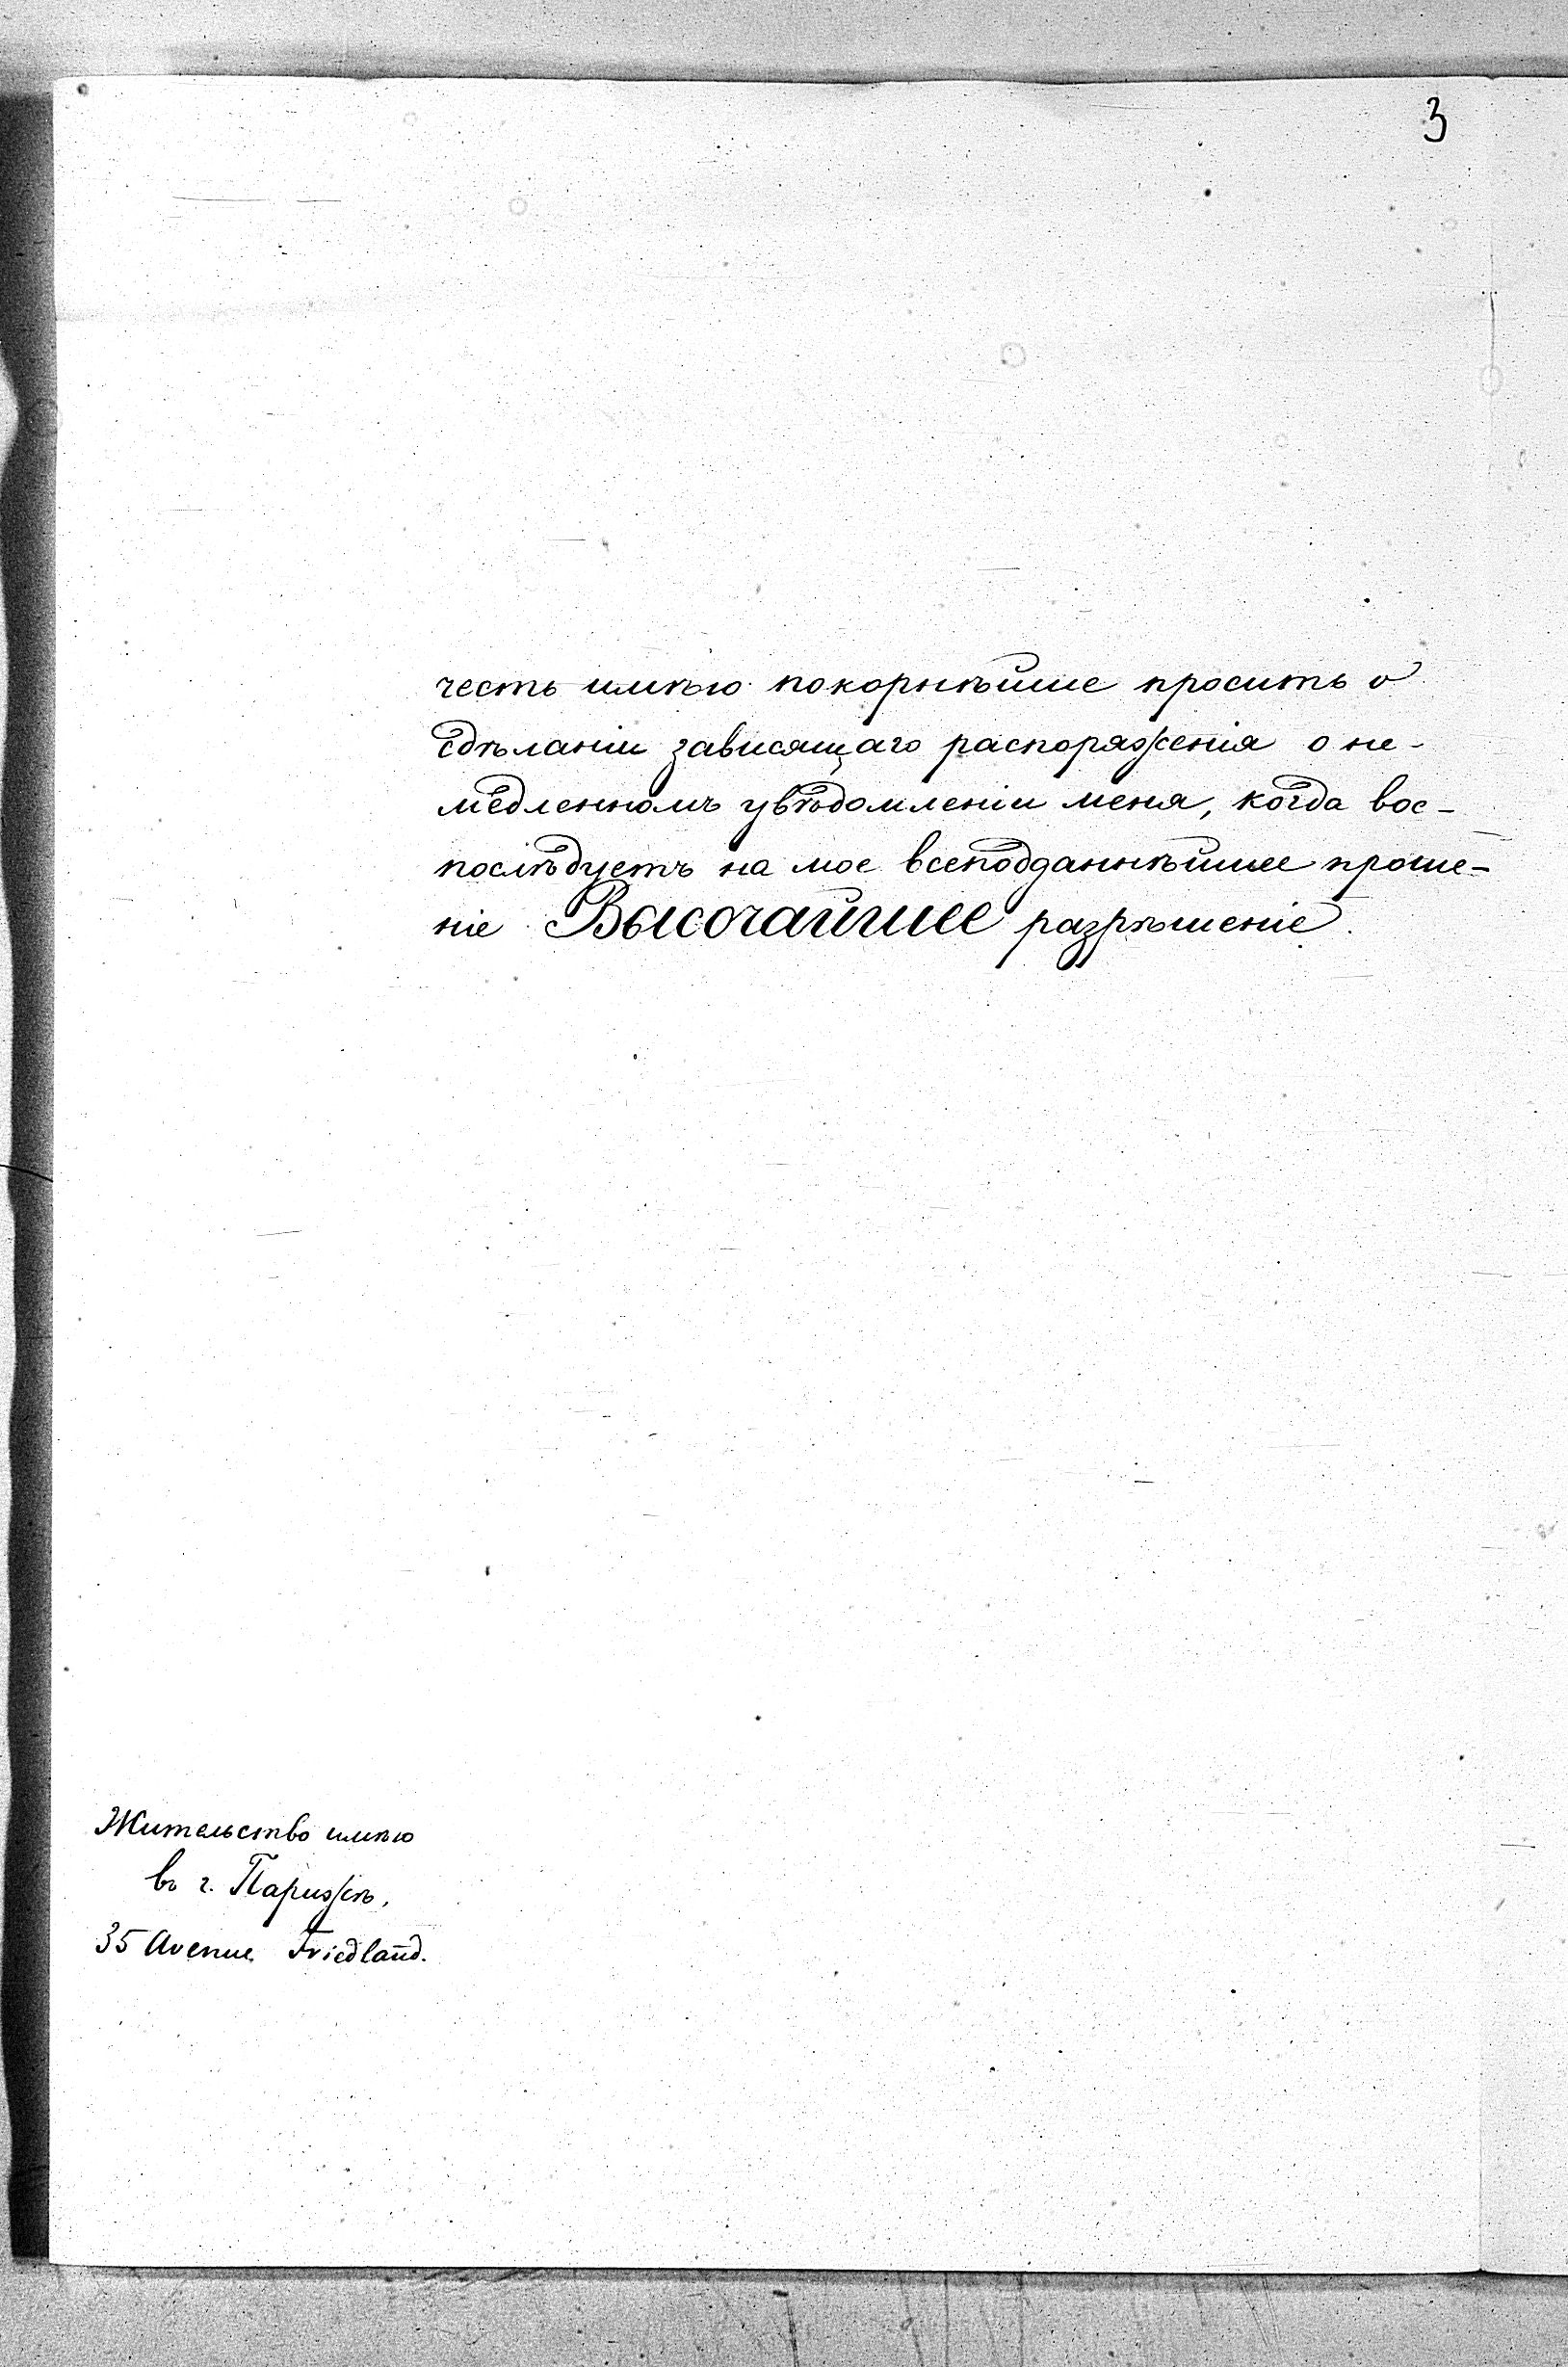 3
честь имѣю покорнѣйше просить о
сдѣланіи зависящаго распоряженія о не-
медленномъ увѣдомленіи меня, когда вос-
послѣдуетъ на мое всеподданнѣйшее проше-
ніе Высочайшее разрѣшеніе.
Жительство имѣю
въ г. Парижѣ,
35 Avenue Friedland.